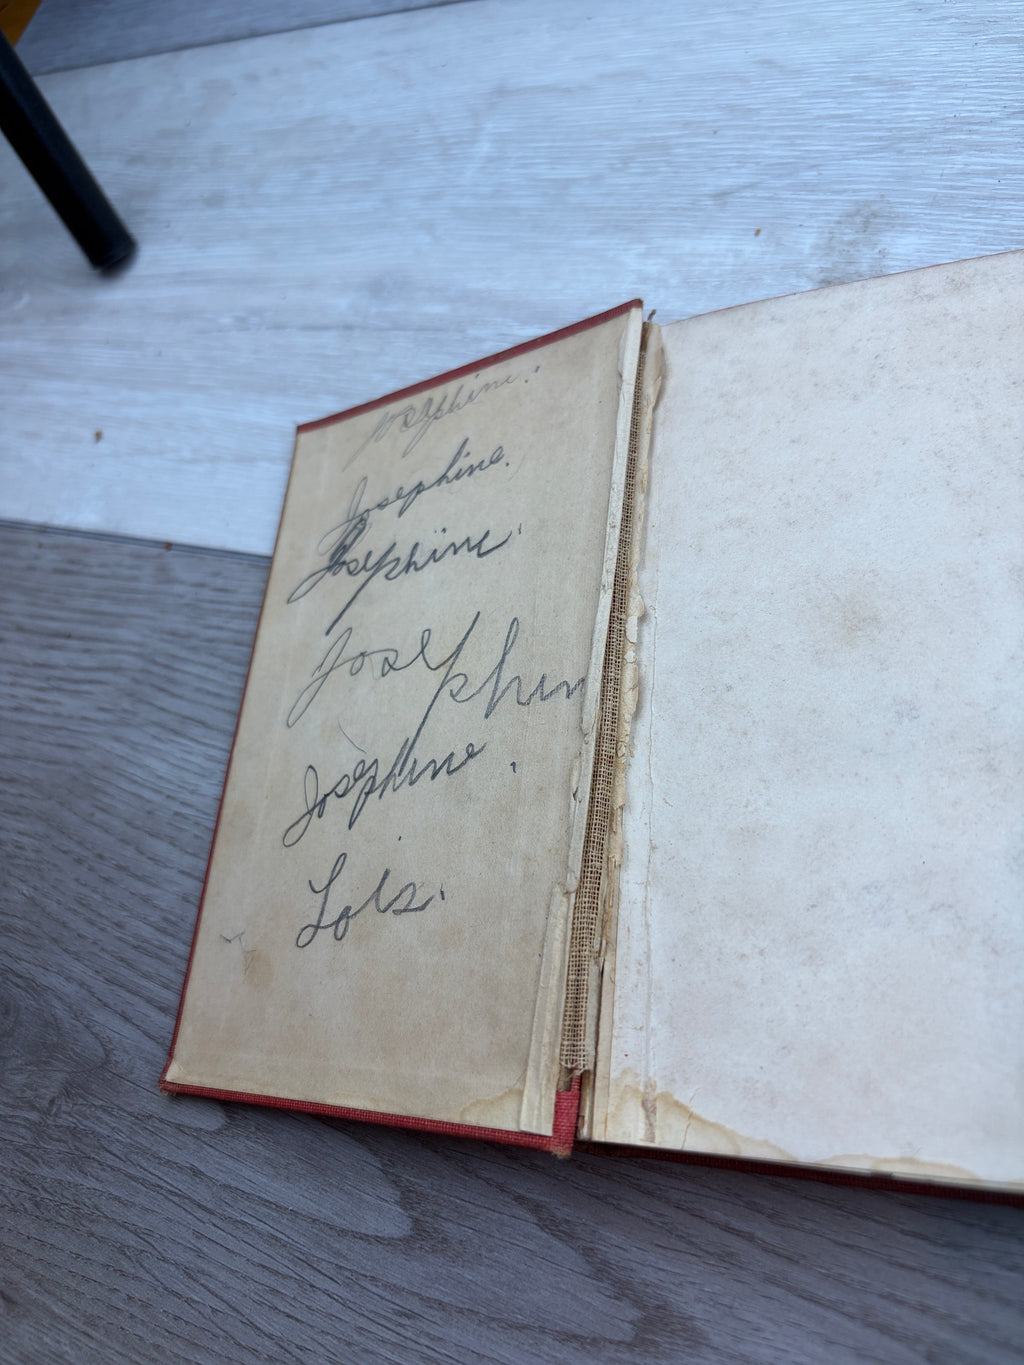 Josephine.
Josephine.
Josephine.
Josephin
Josephine.
Lois.